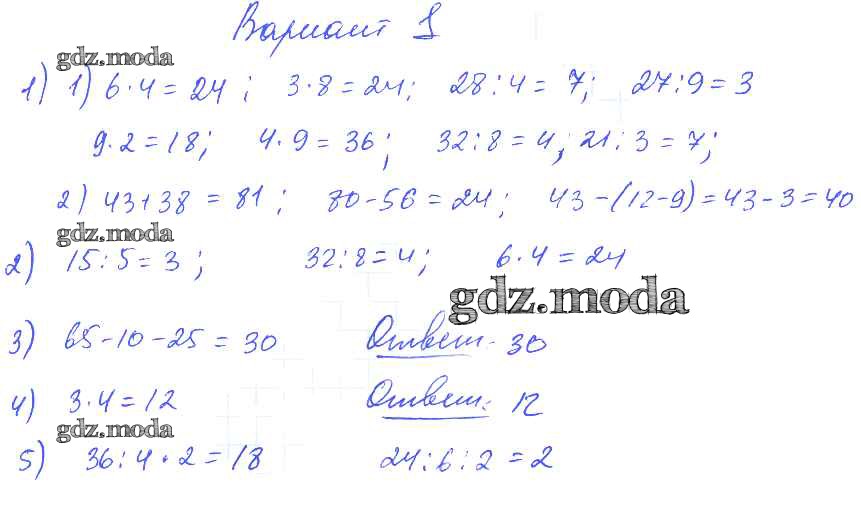 Вариант 1
gdz.moda
1) 1) 6·4=24; 3·8=24; 28:4=7; 27:9=3
9·2=18; 4·9=36; 32:8=4; 21:3=7;
2) 43+38=81; 80-56=24; 43-(12-9)=43-3=40
gdz.moda
2) 15:5=3; 32:8=4; 6·4=24
gdz.moda
3) 65-10-25=30 Ответ: 30
4) 3·4=12 Ответ: 12
gdz.moda
5) 36:4·2=18 24:6:2=2